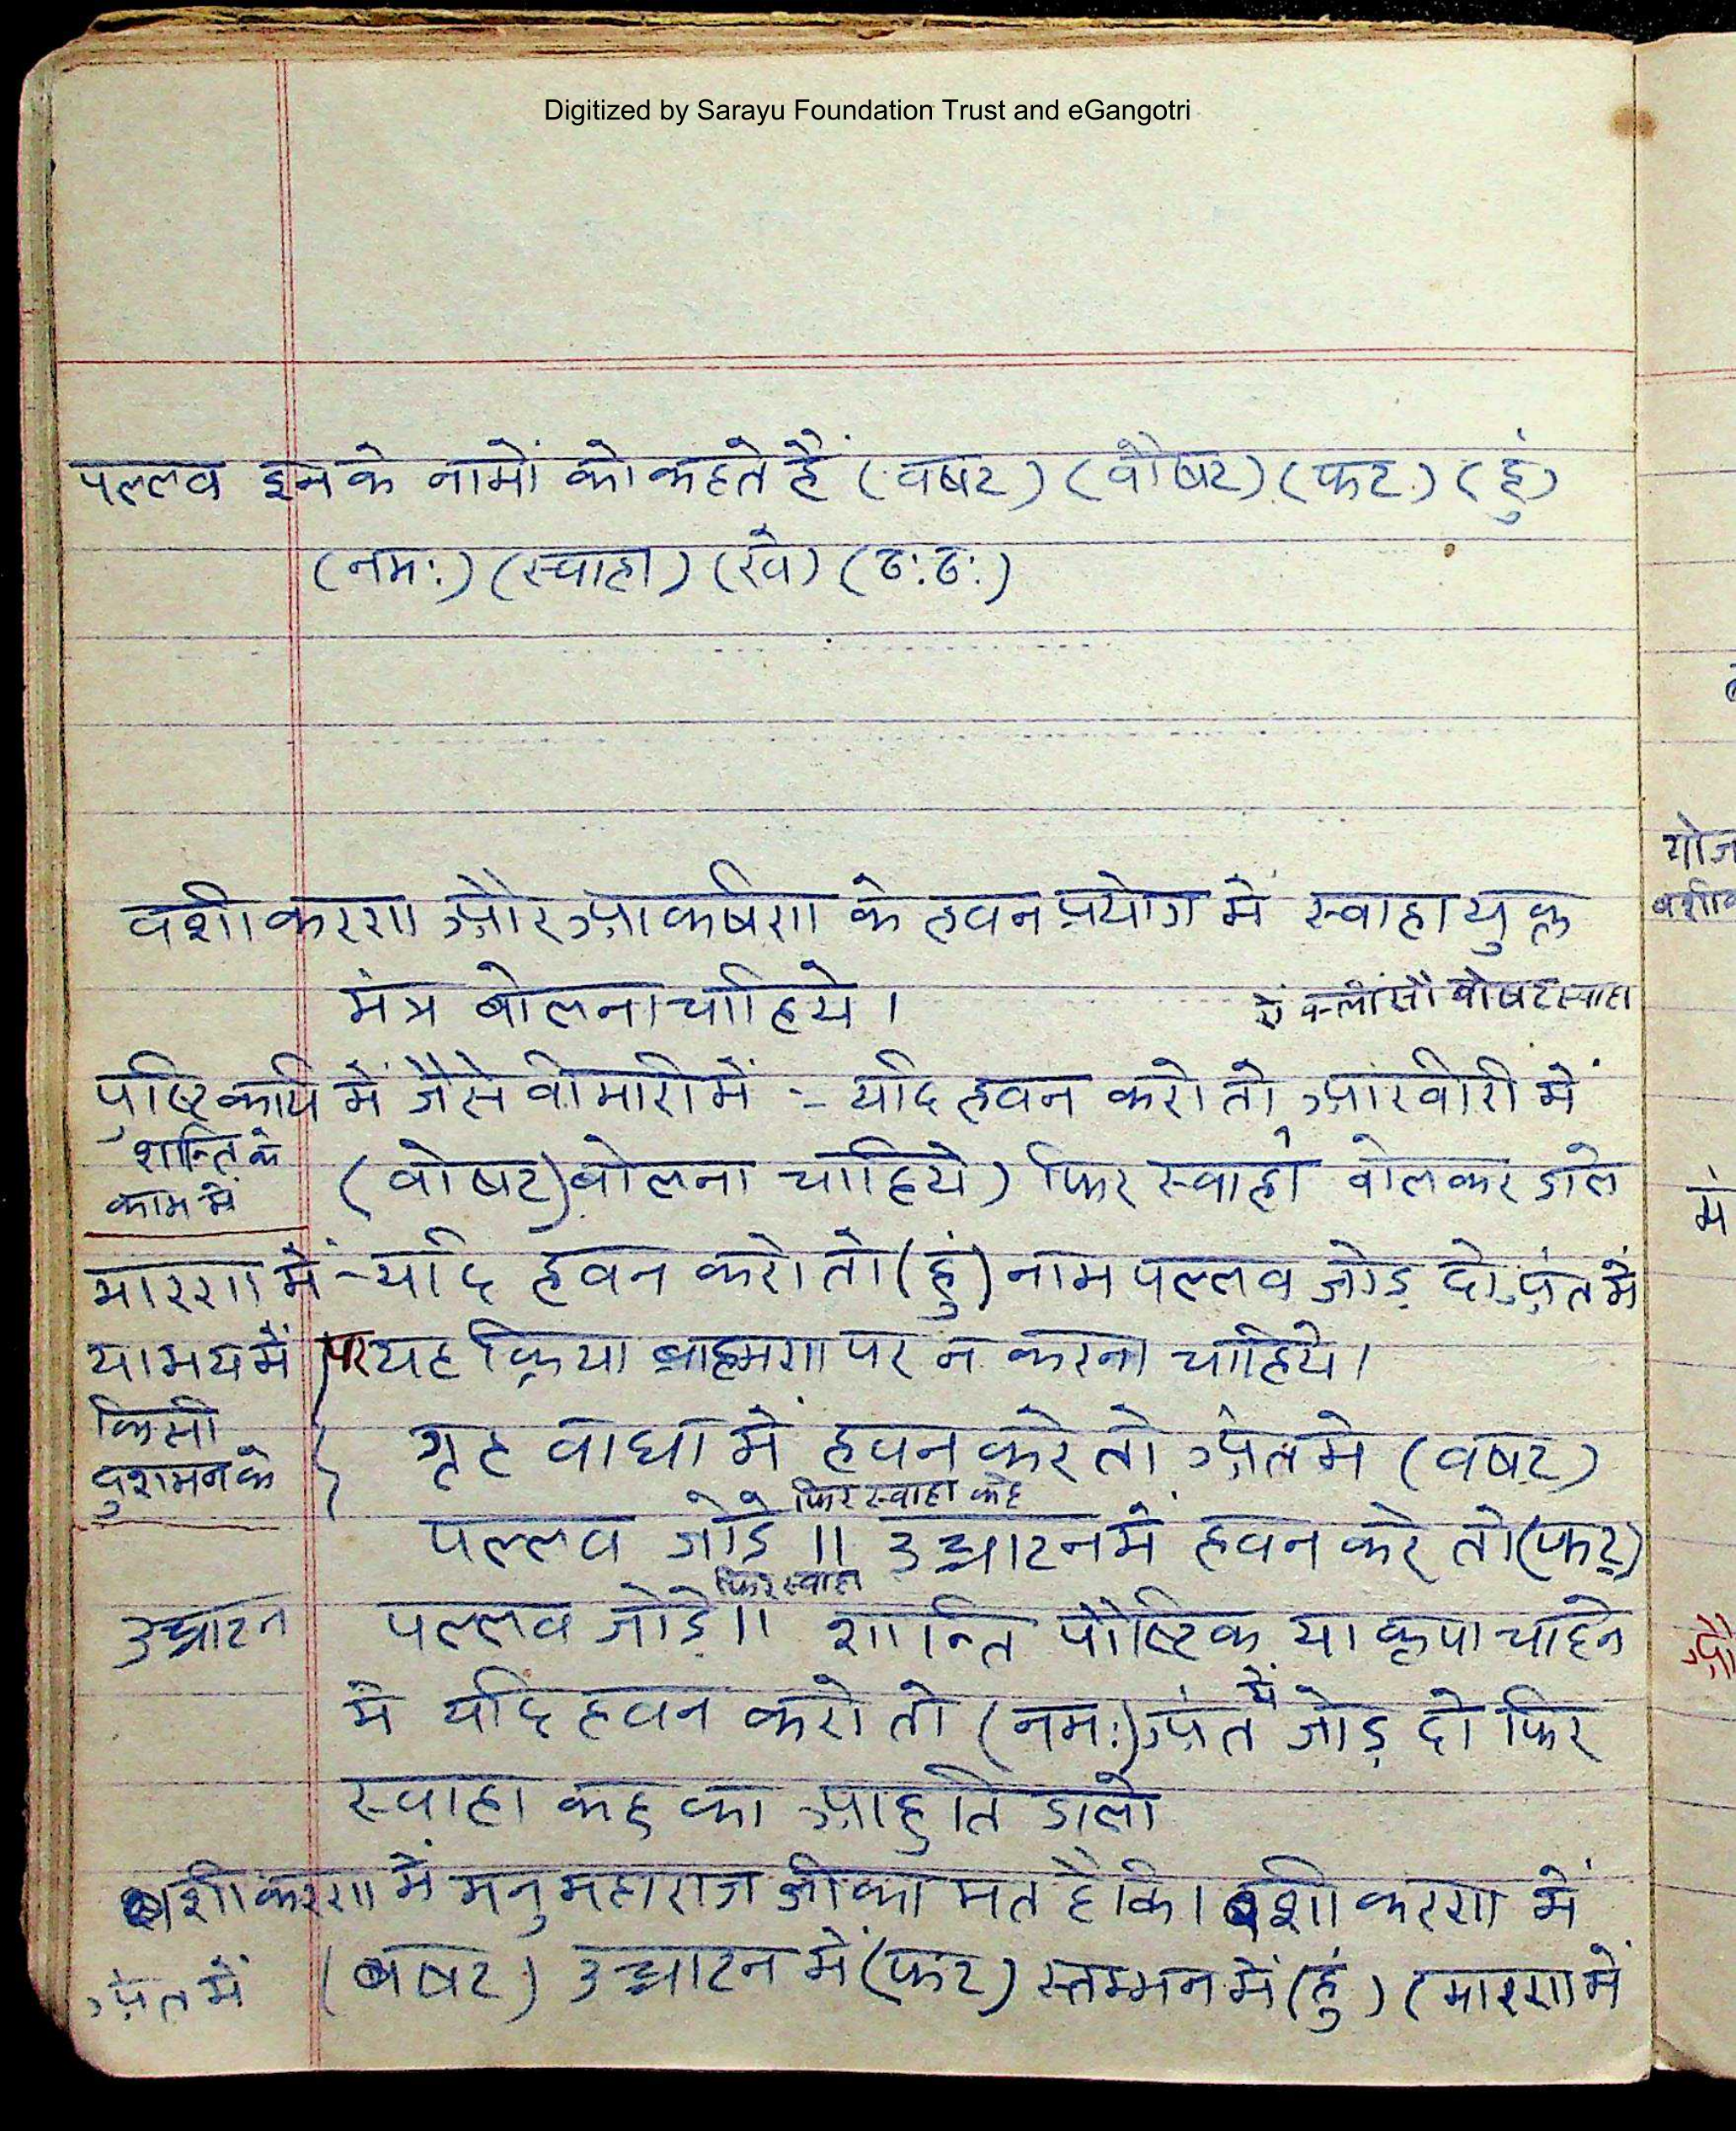 Digitized by Sarayu Foundation Trust and eGangotri
पल्लव इनके नामों को कहते हैं (वषट) (वौषट) (फट) (हुं)
(नमः) (स्वाहा) (खे) (ठःठः)
वशीकरण और आकर्षण के हवन प्रयोग में स्वाहा युक्त
मंत्र बोलना चाहिये।
ऐं क्लीं सौं वौषट स्वाहा
पुष्टि कार्य में जैसे वीमारी में :- यदि हवन करो तो आखीरी में
शान्ति के
काम में
(वौषट) वोलना चाहिये) फिर स्वाहा वोलकर डाले
मारण में - यदि हवन करो तो (हुं) नाम पल्लव जोड़ दो अंत में
या भय में
पर यह क्रिया ब्राह्मण पर न करना चाहिये।
किसी
दुशमन के
गृह वाधा में हवन करे तो अंत मे (वषट)
फिर स्वाहा कहे
पल्लव जोडे ॥ उच्चाटन में हवन करे तो (फट)
फिर स्वाहा
उच्चाटन
पल्लव जोडे॥ शान्ति पौष्टिक या कृपा चाहने
मे यदि हवन करो तो (नमः) अंत में जोड़ दो फिर
स्वाहा कह का आहुति डालो
वशीकरण में मनु महाराज जी का मत है कि। वशीकरण में
अंत में
(वषट) उच्चाटन में (फट) स्तम्भन में (हुं) (मारण में
योज
वशीक
में
औ